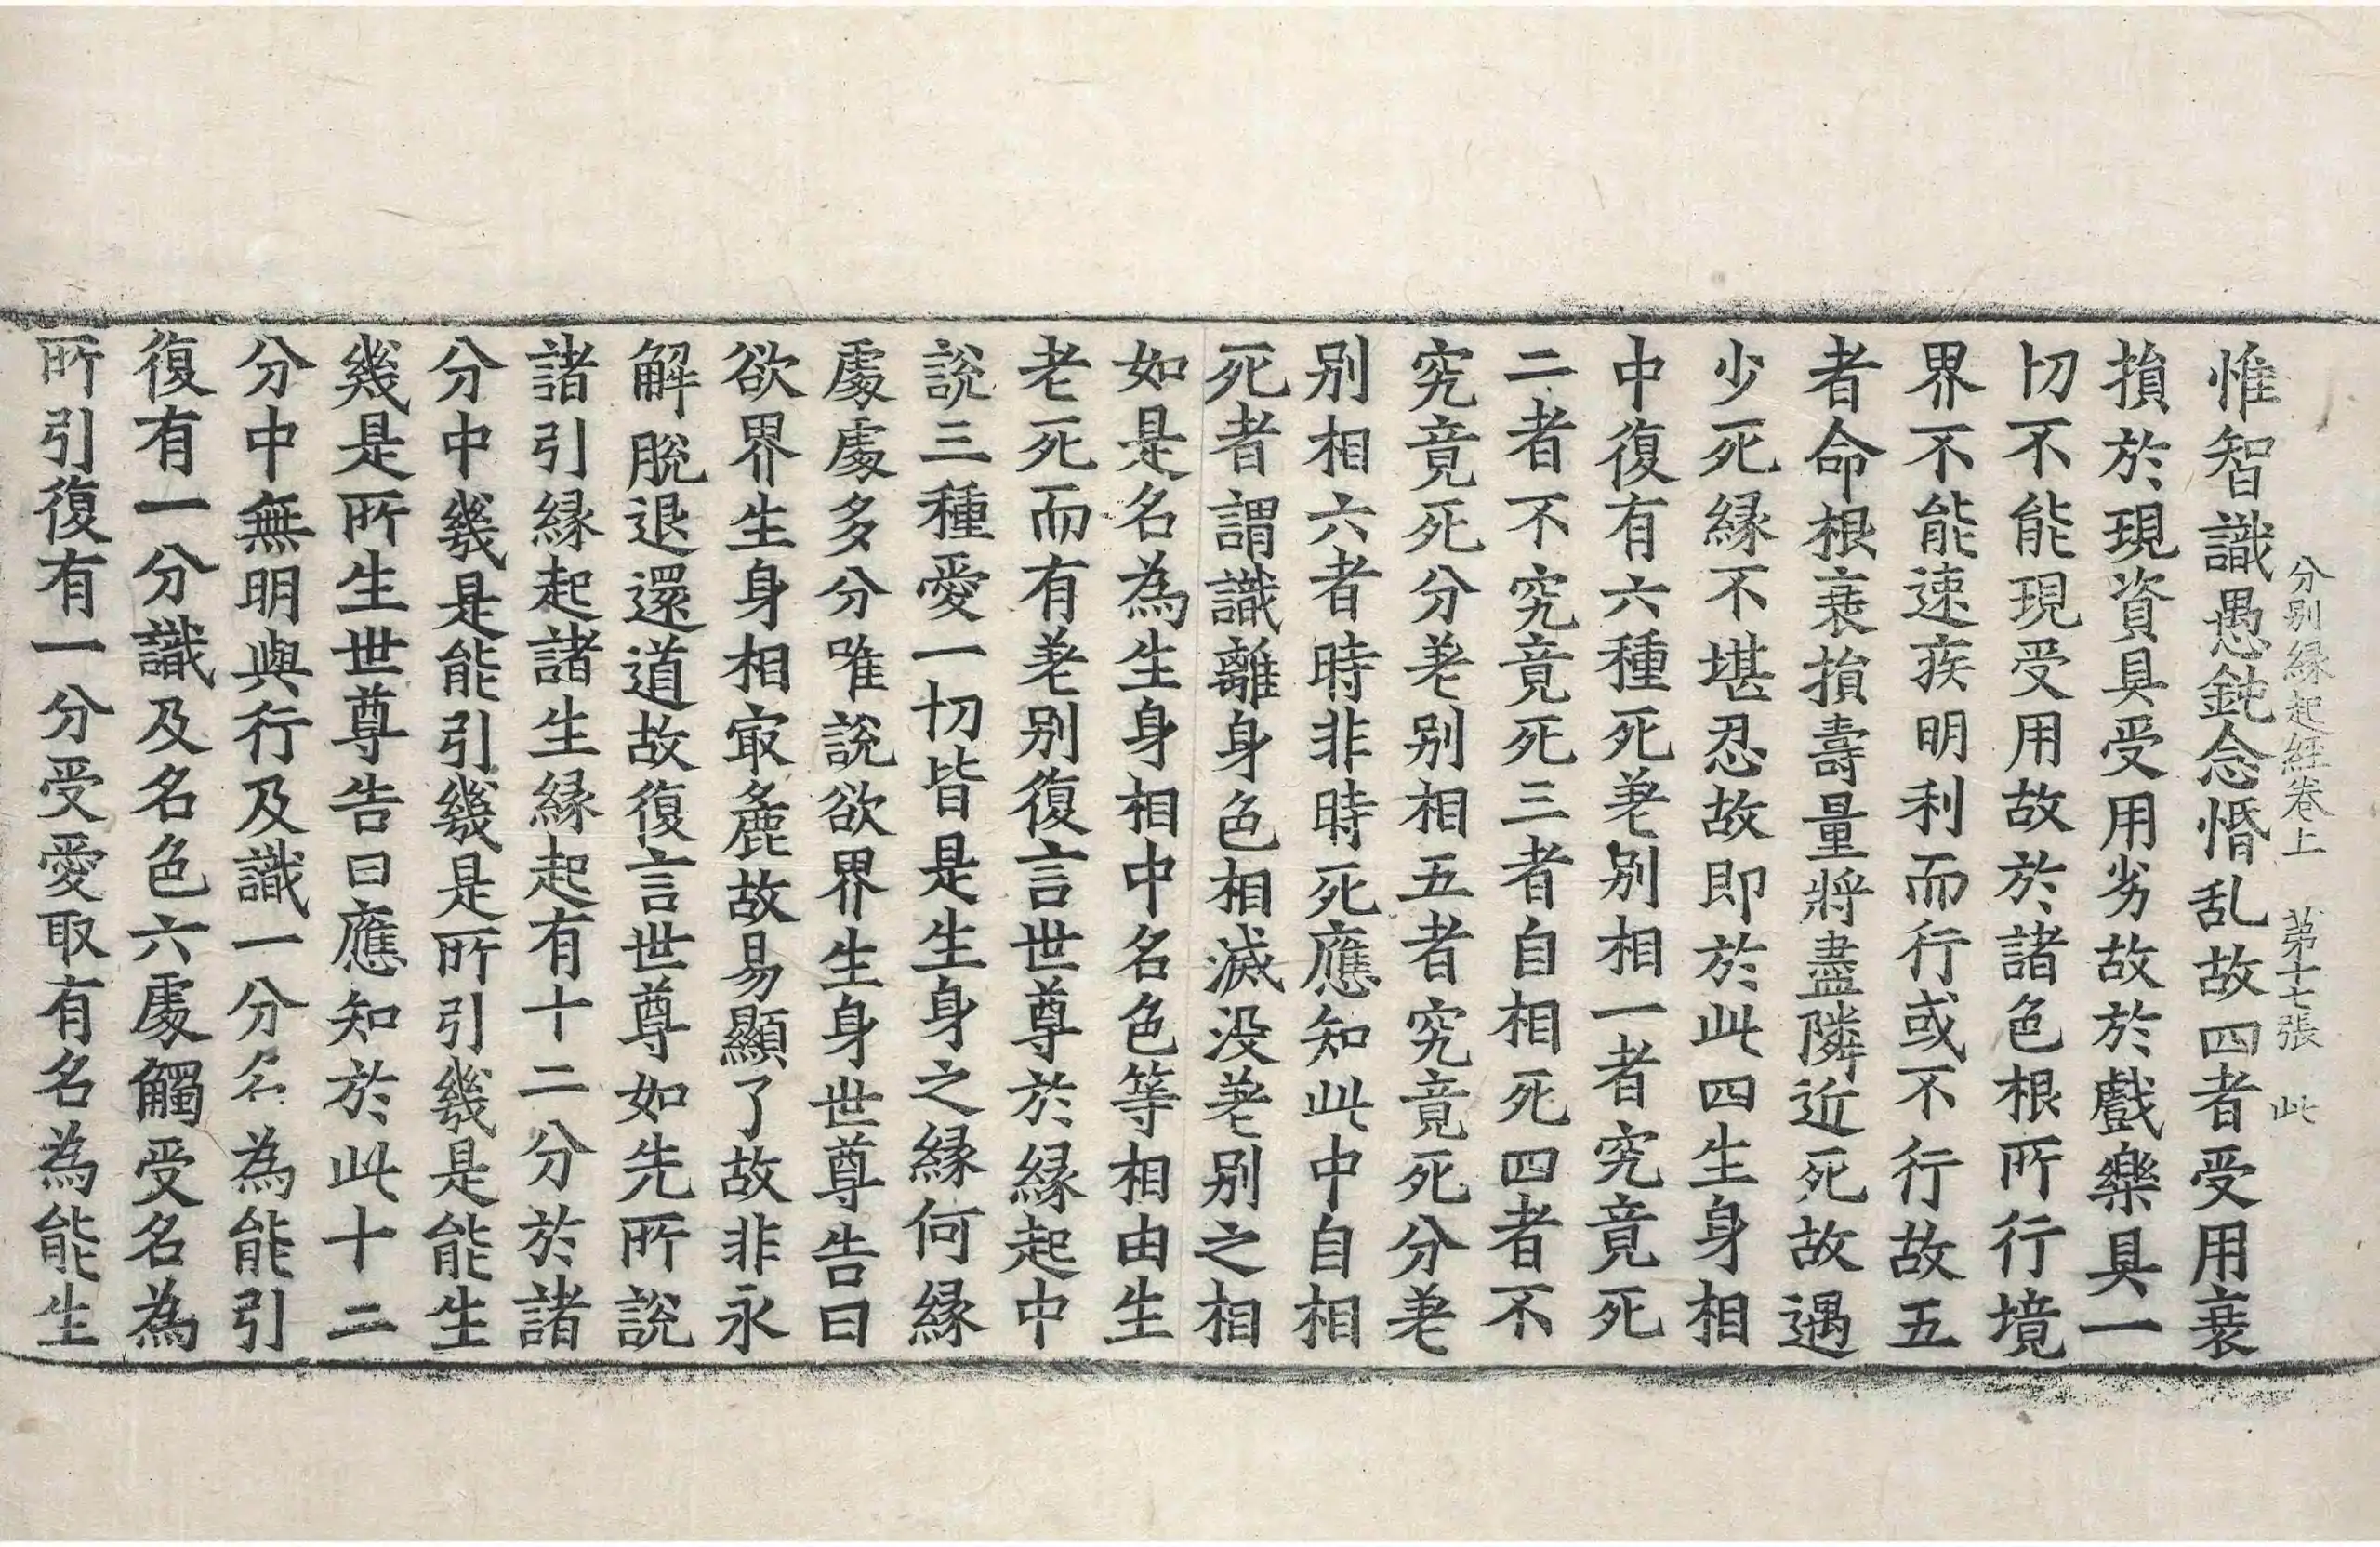 分别緣起經卷上 第十七張 此
惟智識愚鈍念惛乱故四者受用衰
損於現資具受用劣故於戲樂具一
切不能現受用故於諸色根所行境
界不能速疾明利而行或不行故五
者命根衰損壽量將盡隣近死故遇
少死緣不堪忍故即於此四生身相
中復有六種死差别相一者究竟死
二者不究竟死三者自相死四者不
究竟死分差别相五者究竟死分差
别相六者時非時死應知此中自相
死者謂識離身色相滅没差别之相
如是名為生身相中名色等相由生
老死而有差别復言世尊於緣起中
說三種愛一切皆是生身之緣何緣
處處多分唯說欲界生身世尊告曰
欲界生身相㝡麁故易顯了故非永
解脫退還道故復言世尊如先所說
諸引緣起諸生緣起有十二分於諸
分中幾是能引幾是所引幾是能生
幾是所生世尊告曰應知於此十二
分中無明與行及識一分名為能引
復有一分識及名色六處觸受名為
所引復有一分受愛取有名為能生